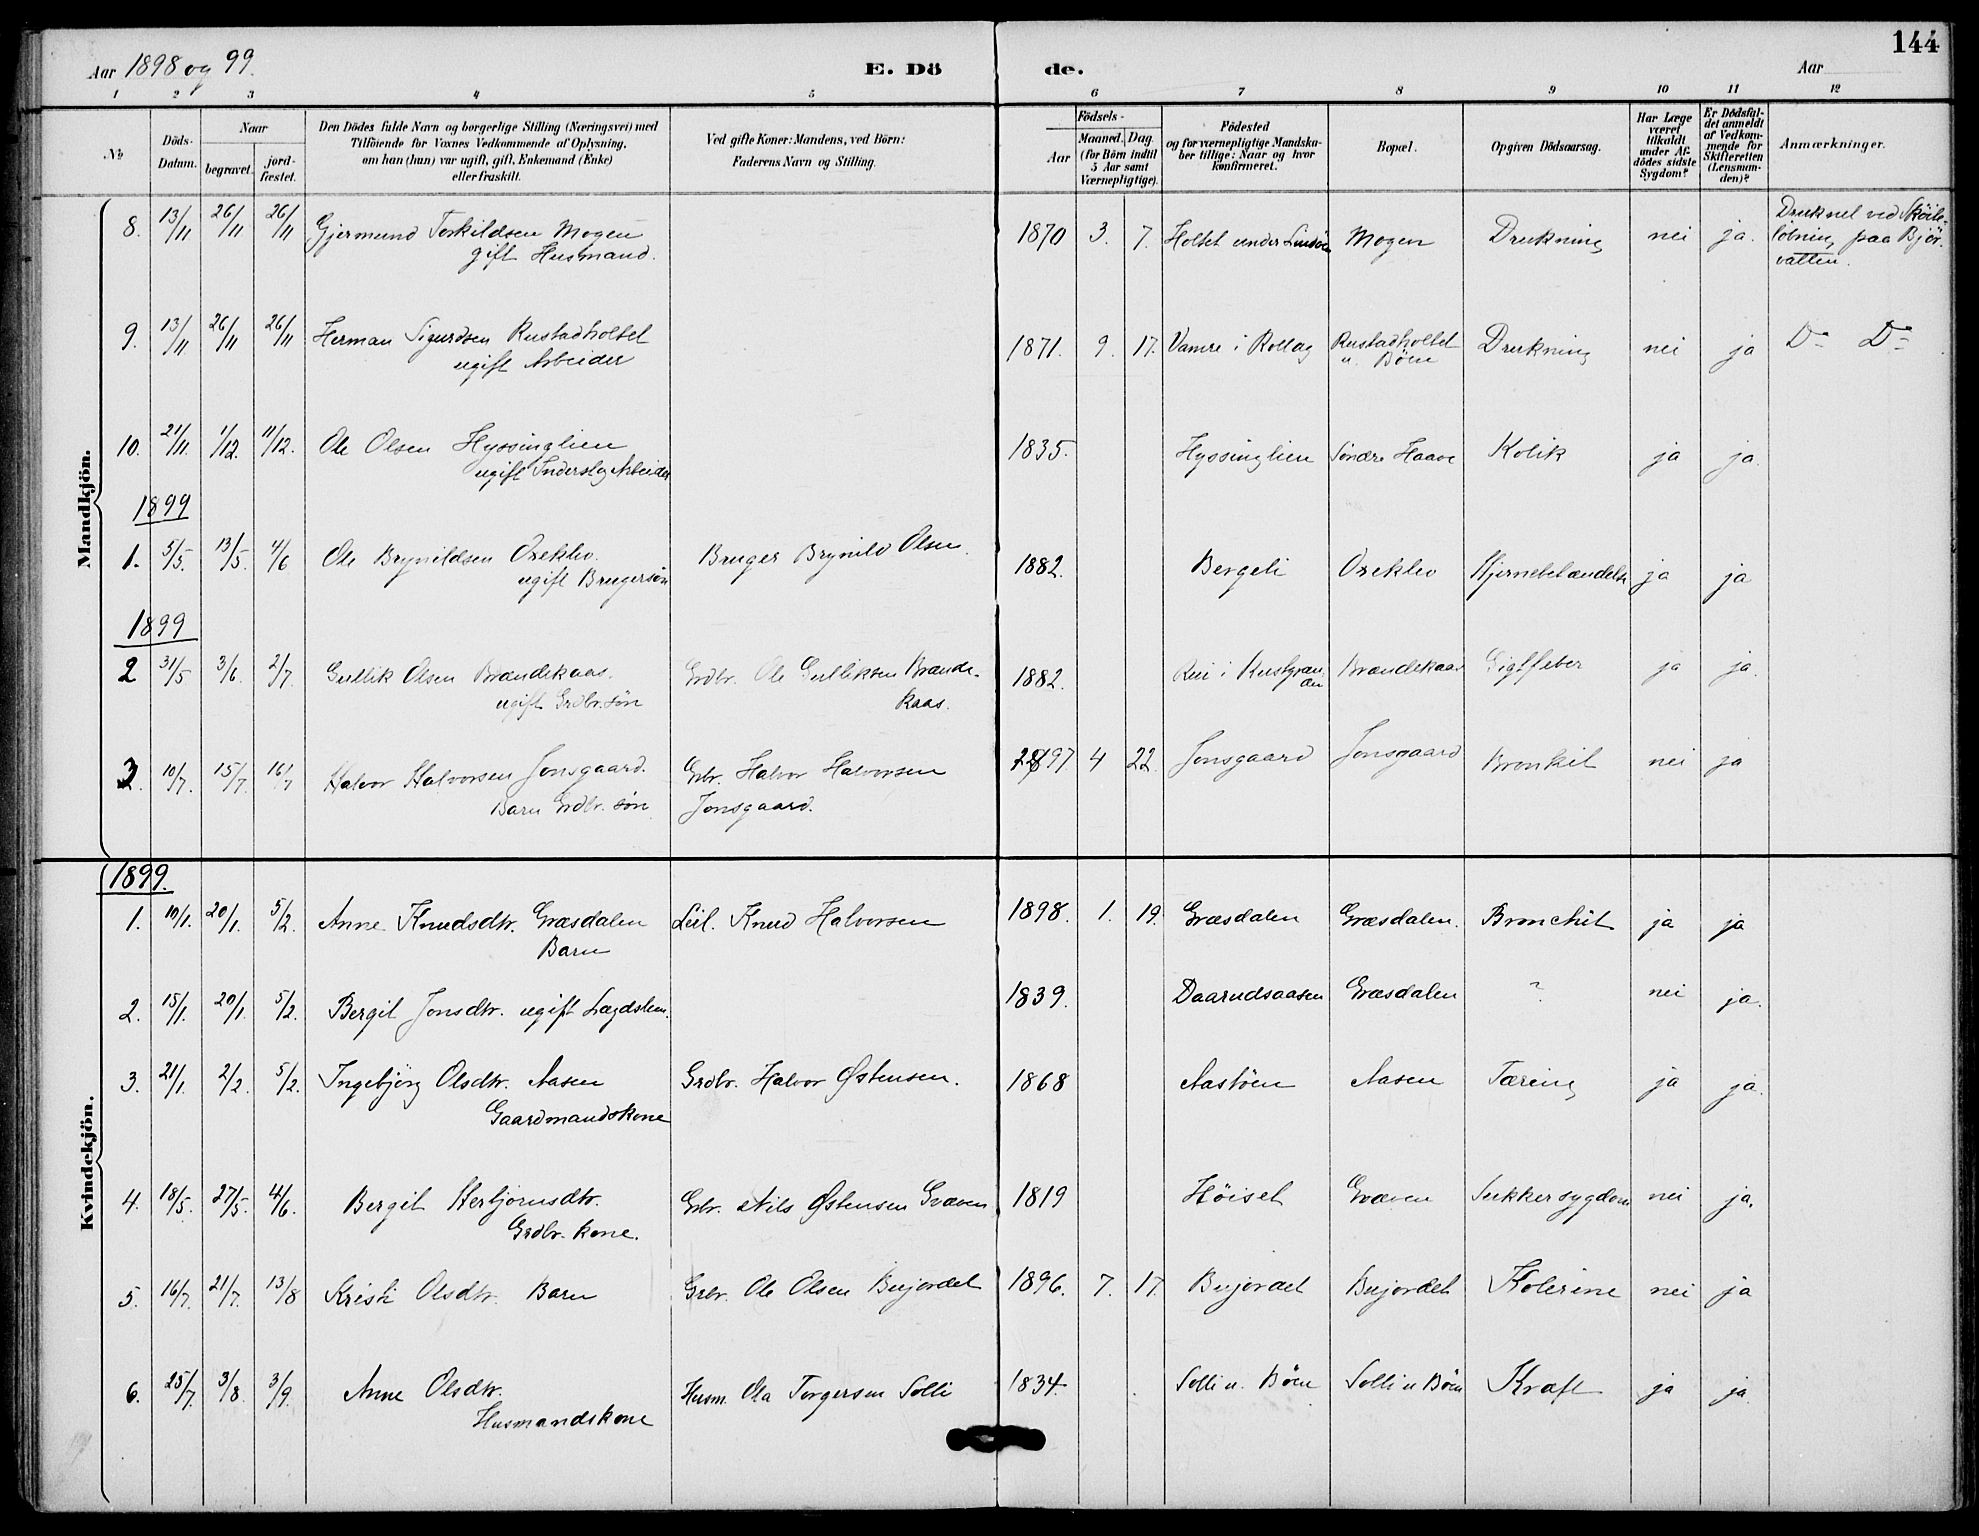 144
Aar 1898 og 99.
E. Dö de.
Aar
1 2 3 4 5 6 7 8 9 10 11 12
№
Döds-Datum.
Naar
begravet.
jord-fæstet.
Den Dödes fulde Navn og borgerlige Stilling (Næringsvei) med
Tilföiende for Voxnes Vedkommende af Oplysning,
om han (hun) var ugift, gift, Enkemand (Enke)
eller fraskilt.
Ved gifte Koner: Mandens, ved Börn:
Faderens Navn og Stilling.
Födsels-
Aar
Maaned. Dag.
(for Börn indtil
5 Aar samt
Værnepligtige).
Födested
og for værnepligtige Mandska-
ber tillige: Naar og hvor
konfirmeret.
Bopæl.
Opgiven Dödsaarsag.
Har Læge
været
tilkaldt
under Af-
dödes sidste
Sygdom?
Er Dödsfal-
det anmeldt
af Vedkom-
mende for
Skifteretten
(Lensman-
den)?
Anmærkninger.
Mandkjön.
8. 13/11 26/11 26/11 Gjermund Torkildsen Mogen 1870 3. 7. Holtet under Mogen Drukning nei ja. Druknet ved Sköite-
gift Husmand. löbning paa Björ-
vatten.
9. 13/11 26/11 26/11 Herman Sigurdsen Rustadholtet 1871. 9. 17. Vamre i Rollag Rustadholtet Drukning nei ja Do Do
ugift Arbeider u. Böen
10. 21/11. 1/12. 11/12. Ole Olsen Hyssinglien 1835. Hyssinglien Söndre Haave Kolik ja ja.
ugift Arbeider
1899
1. 5/5. 13/5. 4/6 Ole Brynildsen Oreklev. Bruger Brynild Olsen. 1882. Bergeli Oreklev Hjernebetændelse ja ja
ugift Brugersön
1899
2 31/5 3/6. 2/7. Gullik Olsen Brændekaas. Grdbr. Ole Gulliksen Brænde- 1882. Brændekaas Gigtfeber ja ja.
ugift Grdbr. sön kaas.
3. 10/7. 15/7. 16/7 Halvor Halvorsen Jonsgaard. Gbr. Halvor Halvorsen 1897 4 22. Jonsgaard Jonsgaard Bronkit nei ja
Barn Grdbr. sön Jonsgaard.
Kvindekjön.
1899.
1. 10/1. 20/1. 5/2. Anne Knudsdtr. Græsdalen Leil. Knud Halvorsen 1898. 1. 19. Græsdalen Græsdalen. Bronchit ja ja
Barn
2. 15/1. 20/1. 5/2. Bergit Jonsdtr. ugift Lægdslem. 1839. Daarudsaasen Græsdalen ? nei ja.
3. 21/1. 2/2. 5/2. Ingebjörg Olsdtr. Aasen Grdbr. Halvor Østensen. 1868 Aastöen Aasen Tæring ja ja.
Gaardmandskone
4. 18/5. 27/5. 4/6. Bergit Herbjörnsdtr. Gbr. Nils Østensen Græven 1819 Höiset Græven Sukkersygdom nei ja.
Grdbr. kone.
5. 16/7. 21/7. 13/8 Kristi Olsdtr. Barn Grbr. Ole Olsen Bujordet 1896. 7. 17. Bujordet Bujordet Kolerine nei ja
6. 25/7. 3/8. 3/9. Anne Olsdtr. Husm. Ola Torgersen Solli 1834. Solli u. Böen Solli u Böen Kræft ja ja.
Husmandskone